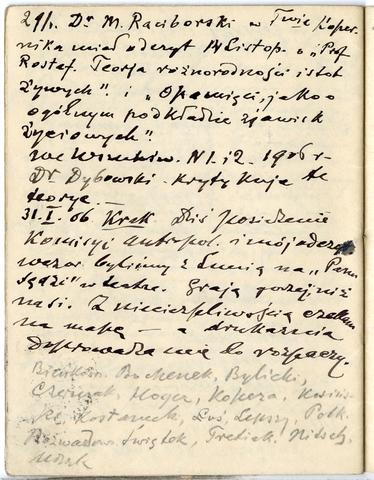 29/1. Dr M. Raciborski w Twie Koper-
nika miał odczyt 14 Listop. o „Prof
Rostaf. Teorja różnorodności istot
żywych". i „O pamięci, jako o
ogólnym podkładzie zjawisk
życiowych".
We Wszechświ. N 1 i 2. 1906 r
Dr. Dybowski krytykuje tę
teorję. —
31.I.06 Krak Dziś posiedzenie
Komisyi antropol. i mój odczyt
wczor. byliśmy z Lunią na „Panu
" w teatrze. Grają gorzej niż
nasi. Z niecierpliwością czekam
na mapę — a drukarnia
doprowadza mię do rozpaczy.
Bochenek, Bylicki,
Ciechan, Hoyer, Kopera,
Kostanek, Łoś, Lepszy, Potk.
Rozwadow. Świątek, Tretiak. Nitsch.